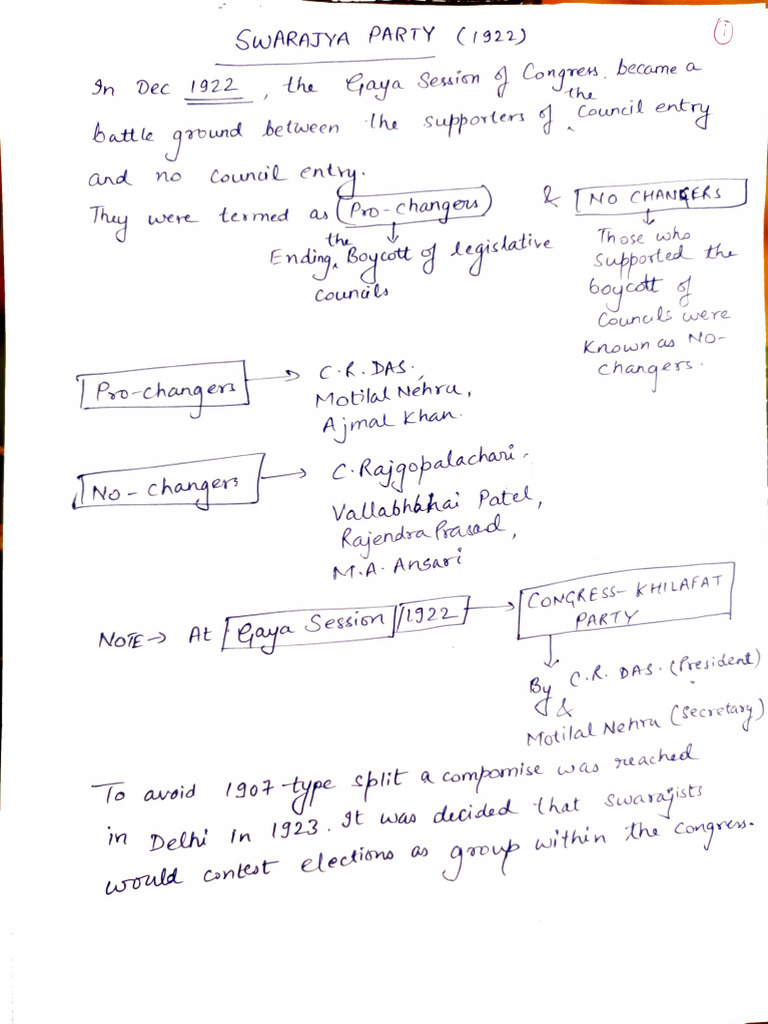 SWARAJYA PARTY (1922)
1
In Dec 1922, the Gaya Session of Congress. became a
battle ground between the supporters of the Council entry
and no council entry.
They were termed as Pro-changers & NO CHANGERS
Ending the Boycott of legislative
councils
Those who
supported the
boycott of
Councils were
known as NO-
changers.
Pro-changers → C.R. DAS.,
Motilal Nehru,
Ajmal Khan.
No-changers → C. Rajgopalachari.
Vallabhbhai Patel,
Rajendra Prasad,
M.A. Ansari
NOTE → At Gaya Session 1922 → CONGRESS-KHILAFAT
PARTY
By C.R. DAS. (President)
&
Motilal Nehru (Secretary)
To avoid 1907-type split a compomise was reached
in Delhi in 1923. It was decided that swarajists
would contest elections as group within the congress.